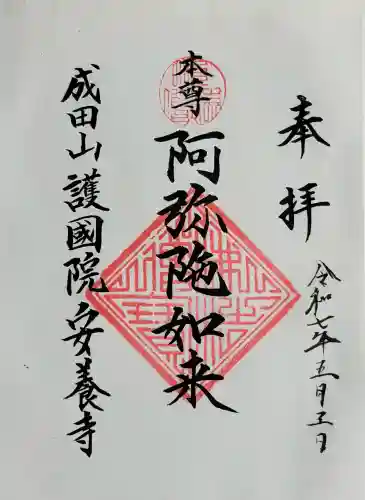 奉拝
令和七年五月五日
本尊
阿弥陀如来
成田山護國院安養寺